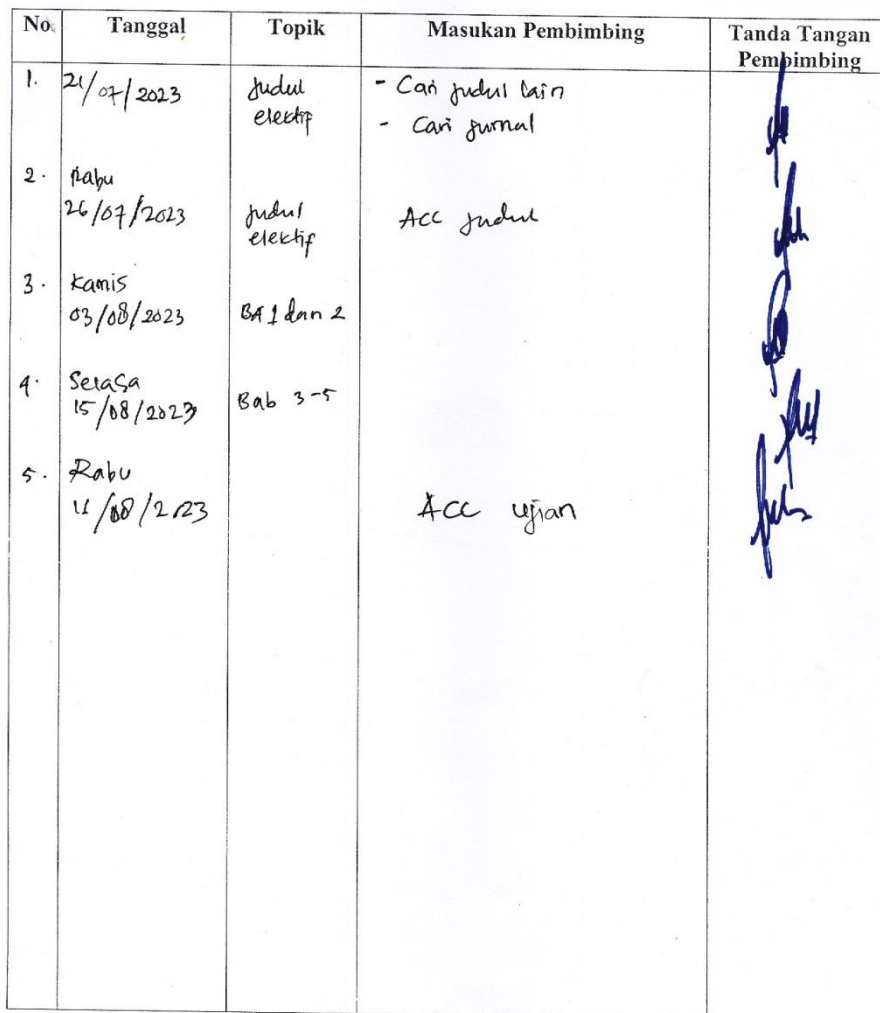 No. Tanggal Topik Masukan Pembimbing Tanda Tangan Pembimbing
1. 21/07/2023 Judul elektif - Cari judul lain
- Cari jurnal
2. Rabu
26/07/2023 Judul elektif ACC judul
3. Kamis
03/08/2023 BA 1 dan 2
4. Selasa
15/08/2023 Bab 3-5
5. Rabu
/08/2023 ACC ujian